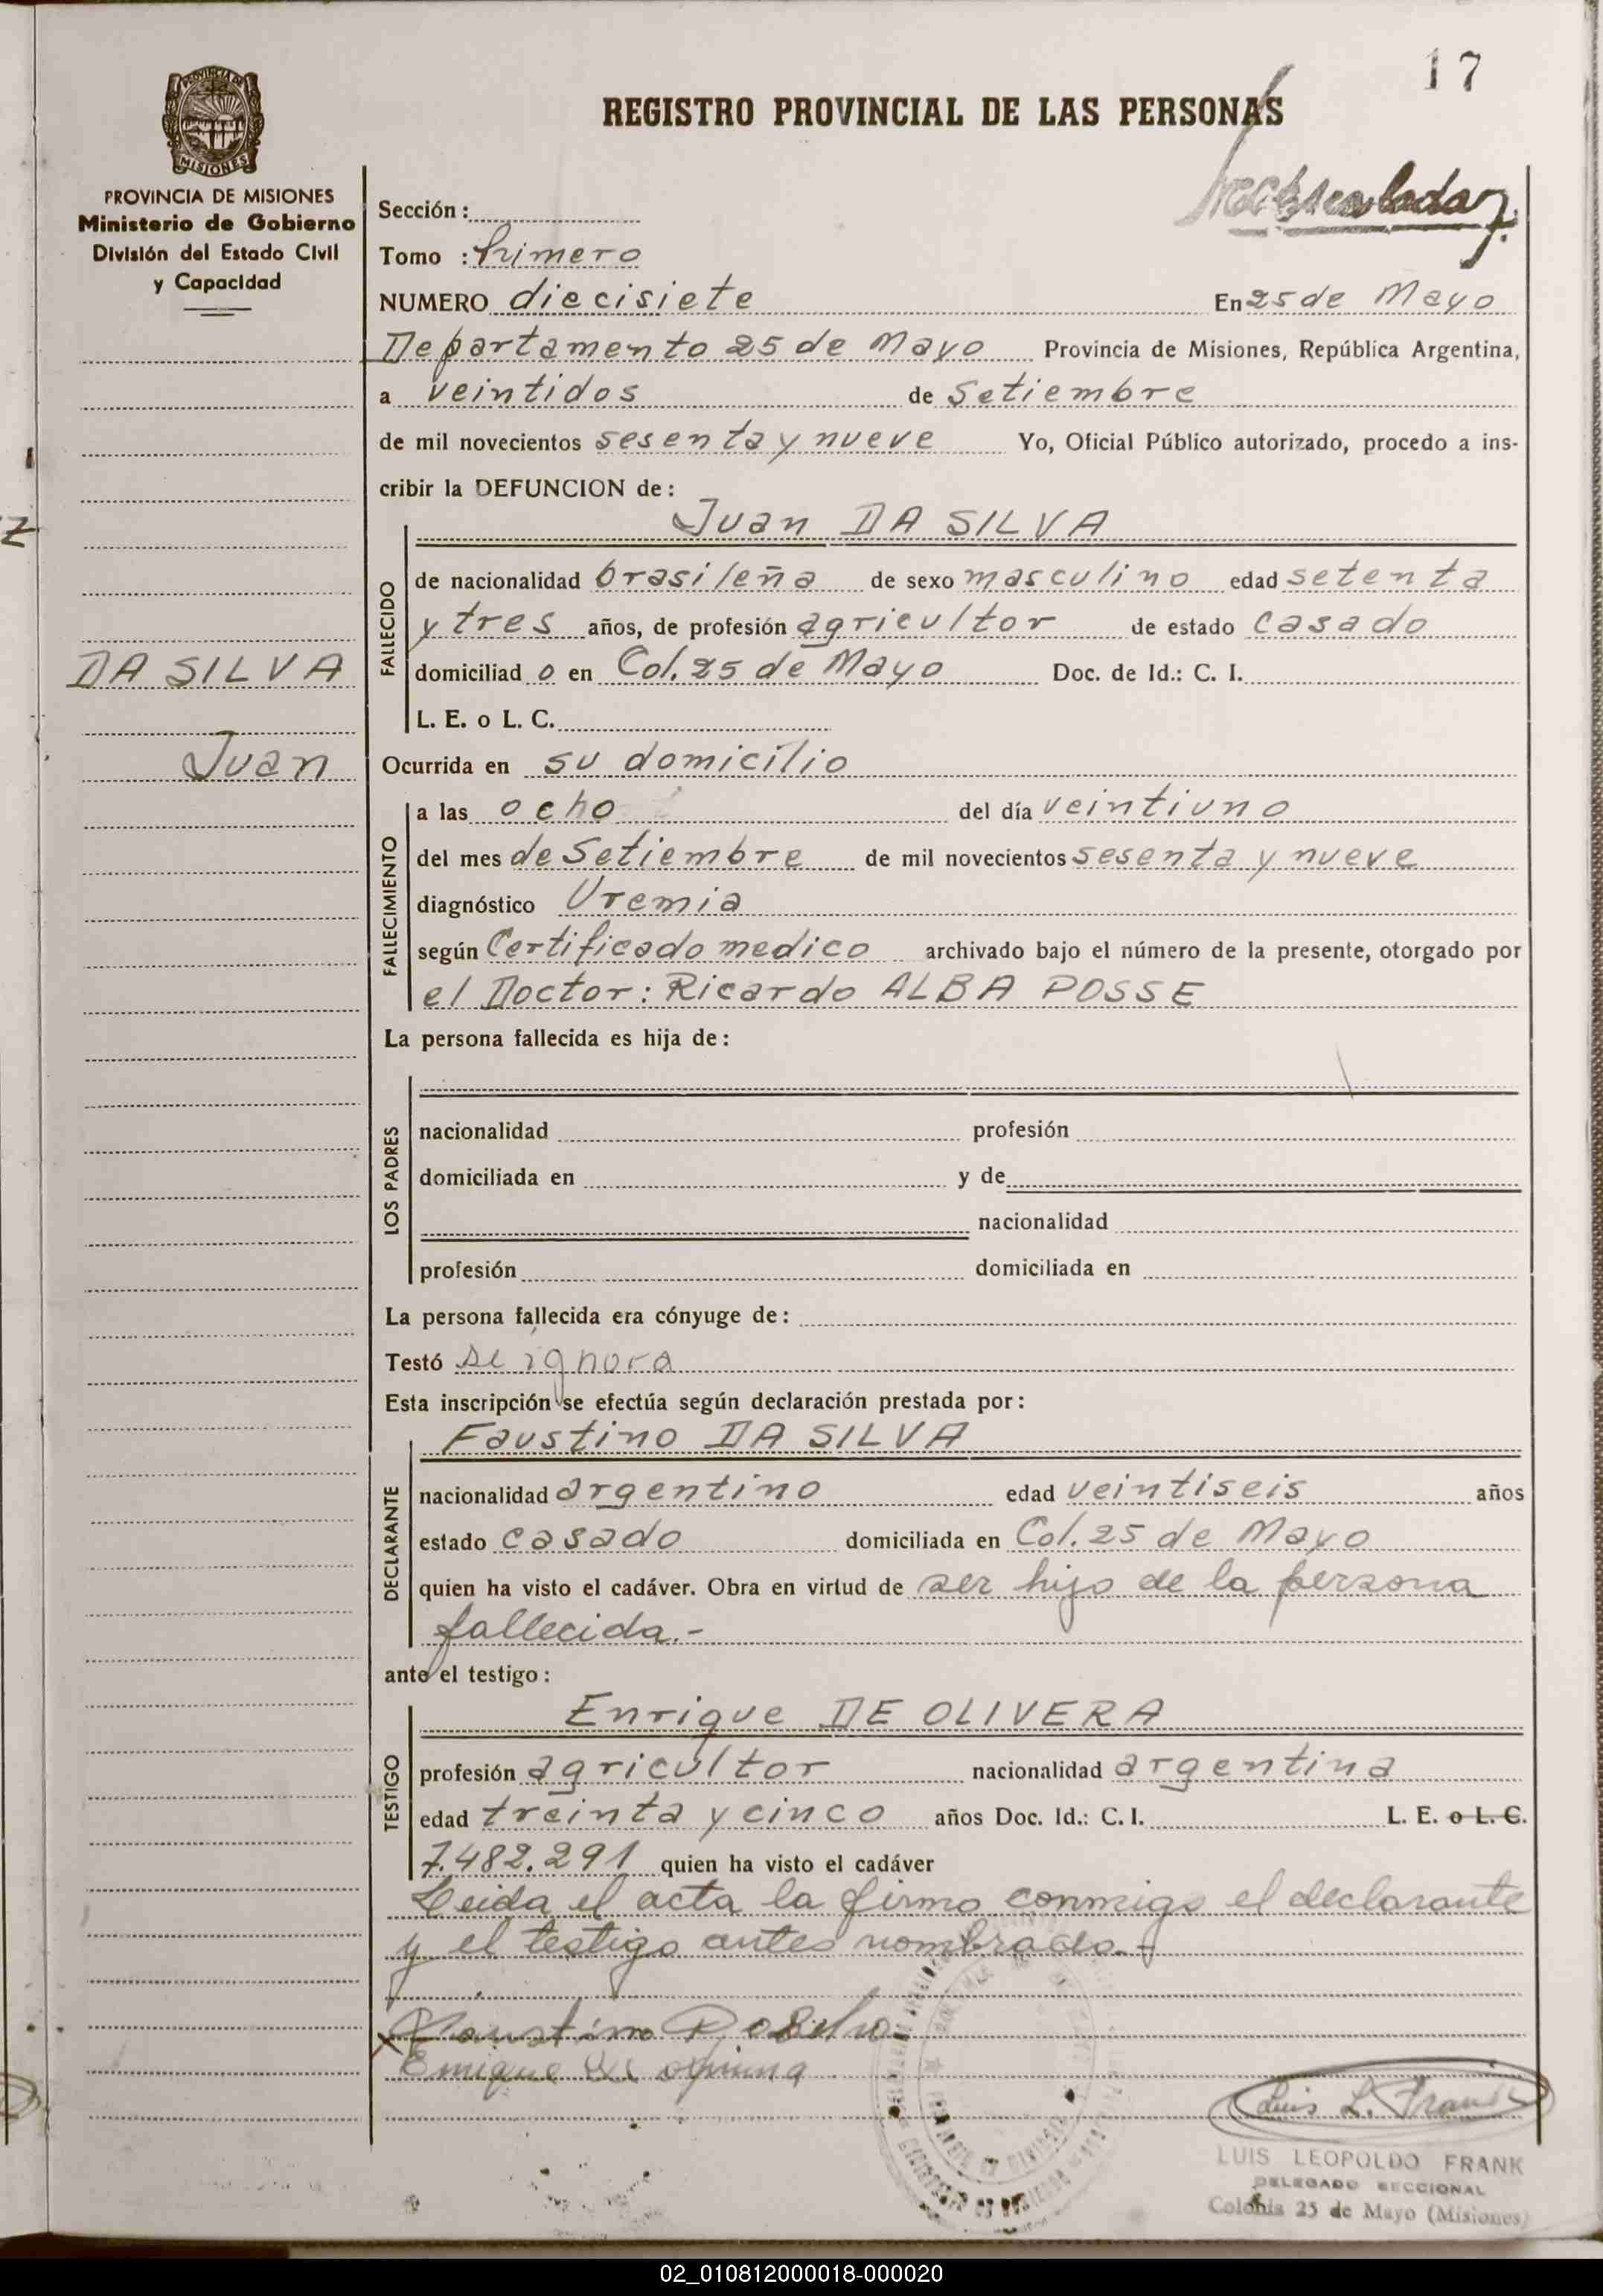 17
REGISTRO PROVINCIAL DE LAS PERSONAS
PROVINCIA DE
MISIONES
PROVINCIA DE MISIONES
Ministerio de Gobierno
División del Estado Civil
y Capacidad
DA SILVA
Juan
Sección:
Tomo : Primero
NUMERO diecisiete En 25 de Mayo
Departamento 25 de Mayo Provincia de Misiones, República Argentina,
a veintidos de Setiembre
de mil novecientos sesenta y nueve Yo, Oficial Público autorizado, procedo a ins-
cribir la DEFUNCION de:
Juan DA SILVA
FALLECIDO
de nacionalidad brasileña de sexo masculino edad setenta
y tres años, de profesión agricultor de estado casado
domiciliad o en Col. 25 de Mayo Doc. de Id.: C. I.
L. E. o L. C.
Ocurrida en su domicilio
FALLECIMIENTO
a las ocho del día veintiuno
del mes de Setiembre de mil novecientos sesenta y nueve
diagnóstico Uremia
según Certificado medico archivado bajo el número de la presente, otorgado por
el Doctor: Ricardo ALBA POSSE
La persona fallecida es hija de:
LOS PADRES
nacionalidad profesión
domiciliada en y de
nacionalidad
profesión domiciliada en
La persona fallecida era cónyuge de:
Testó se ignora
Esta inscripción se efectúa según declaración prestada por:
Faustino DA SILVA
DECLARANTE
nacionalidad argentino edad veintiseis años
estado casado domiciliada en Col. 25 de Mayo
quien ha visto el cadáver. Obra en virtud de ser hijo de la persona
fallecida.-
ante el testigo:
Enrique DE OLIVERA
TESTIGO
profesión agricultor nacionalidad argentina
edad treinta y cinco años Doc. Id.: C. I. L. E. o L. C.
7.482.291 quien ha visto el cadáver
Leida el acta la firma conmigo el declarante
y el testigo antes nombrado.-
Faustino
Enrique
Luis L. Frank
LUIS LEOPOLDO FRANK
DELEGADO SECCIONAL
Colonia 25 de Mayo (Misiones)
02_010812000018-000020